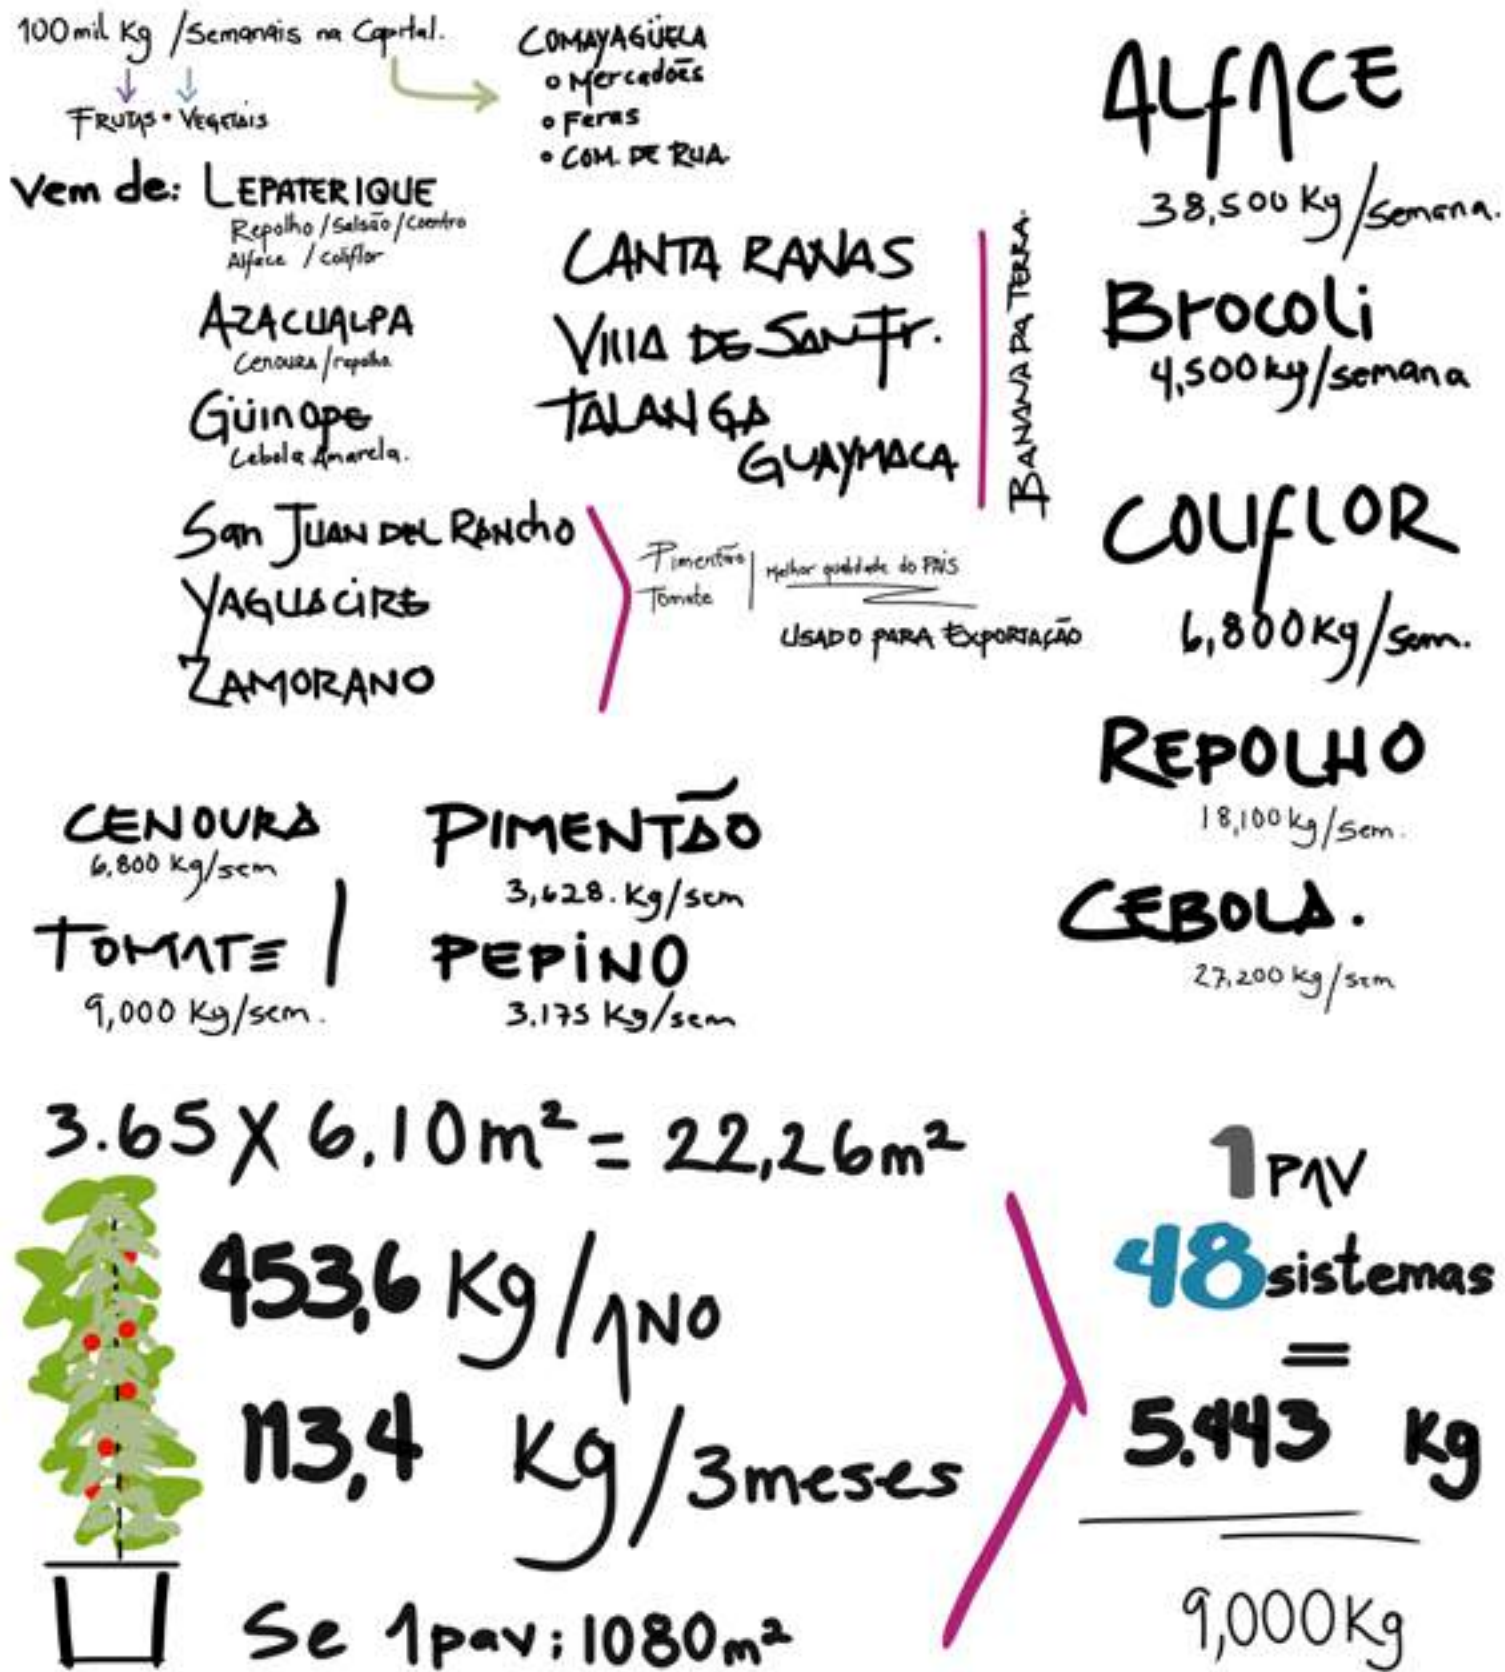 100mil Kg /Semanais na Capital.
FRUTAS • VEGETAIS
COMAYAGÜELA
• Mercadões
• Feras
• COM. DE RUA.
Vem de: LEPATERIQUE
Repolho / Salsão / Coentro
Alface / coliflor
AZACUALPA
Cenoura / repolho
Güinope
Cebola Amarela.
San JUAN DEL RANCHO
YAGUACIRE
ZAMORANO
CANTA RANAS
VIllA DE SAN Fr.
TALANGA
GUAYMACA
BANANA DA TERRA.
Pimentão
Tomate
Melhor qualidade do PAÍS
USADO PARA EXPORTAÇÃO
ALFACE
38,500 Kg/semana.
Brocoli
4,500 kg/semana
COLIFLOR
6,800 Kg/sem.
REPOLHO
18,100 kg/sem.
CEBOLA.
27,200 kg/sem
CENOURA
6,800 Kg/sem
TOMATE
9,000 Kg/sem.
PIMENTÃO
3,628. Kg/sem
PEPINO
3.175 Kg/sem
3.65 X 6.10m² = 22,26m²
453,6 Kg/ANO
113,4 Kg/3meses
Se 1pav: 1080m²
1 PAV
48 sistemas
=
5.443 Kg
9,000Kg